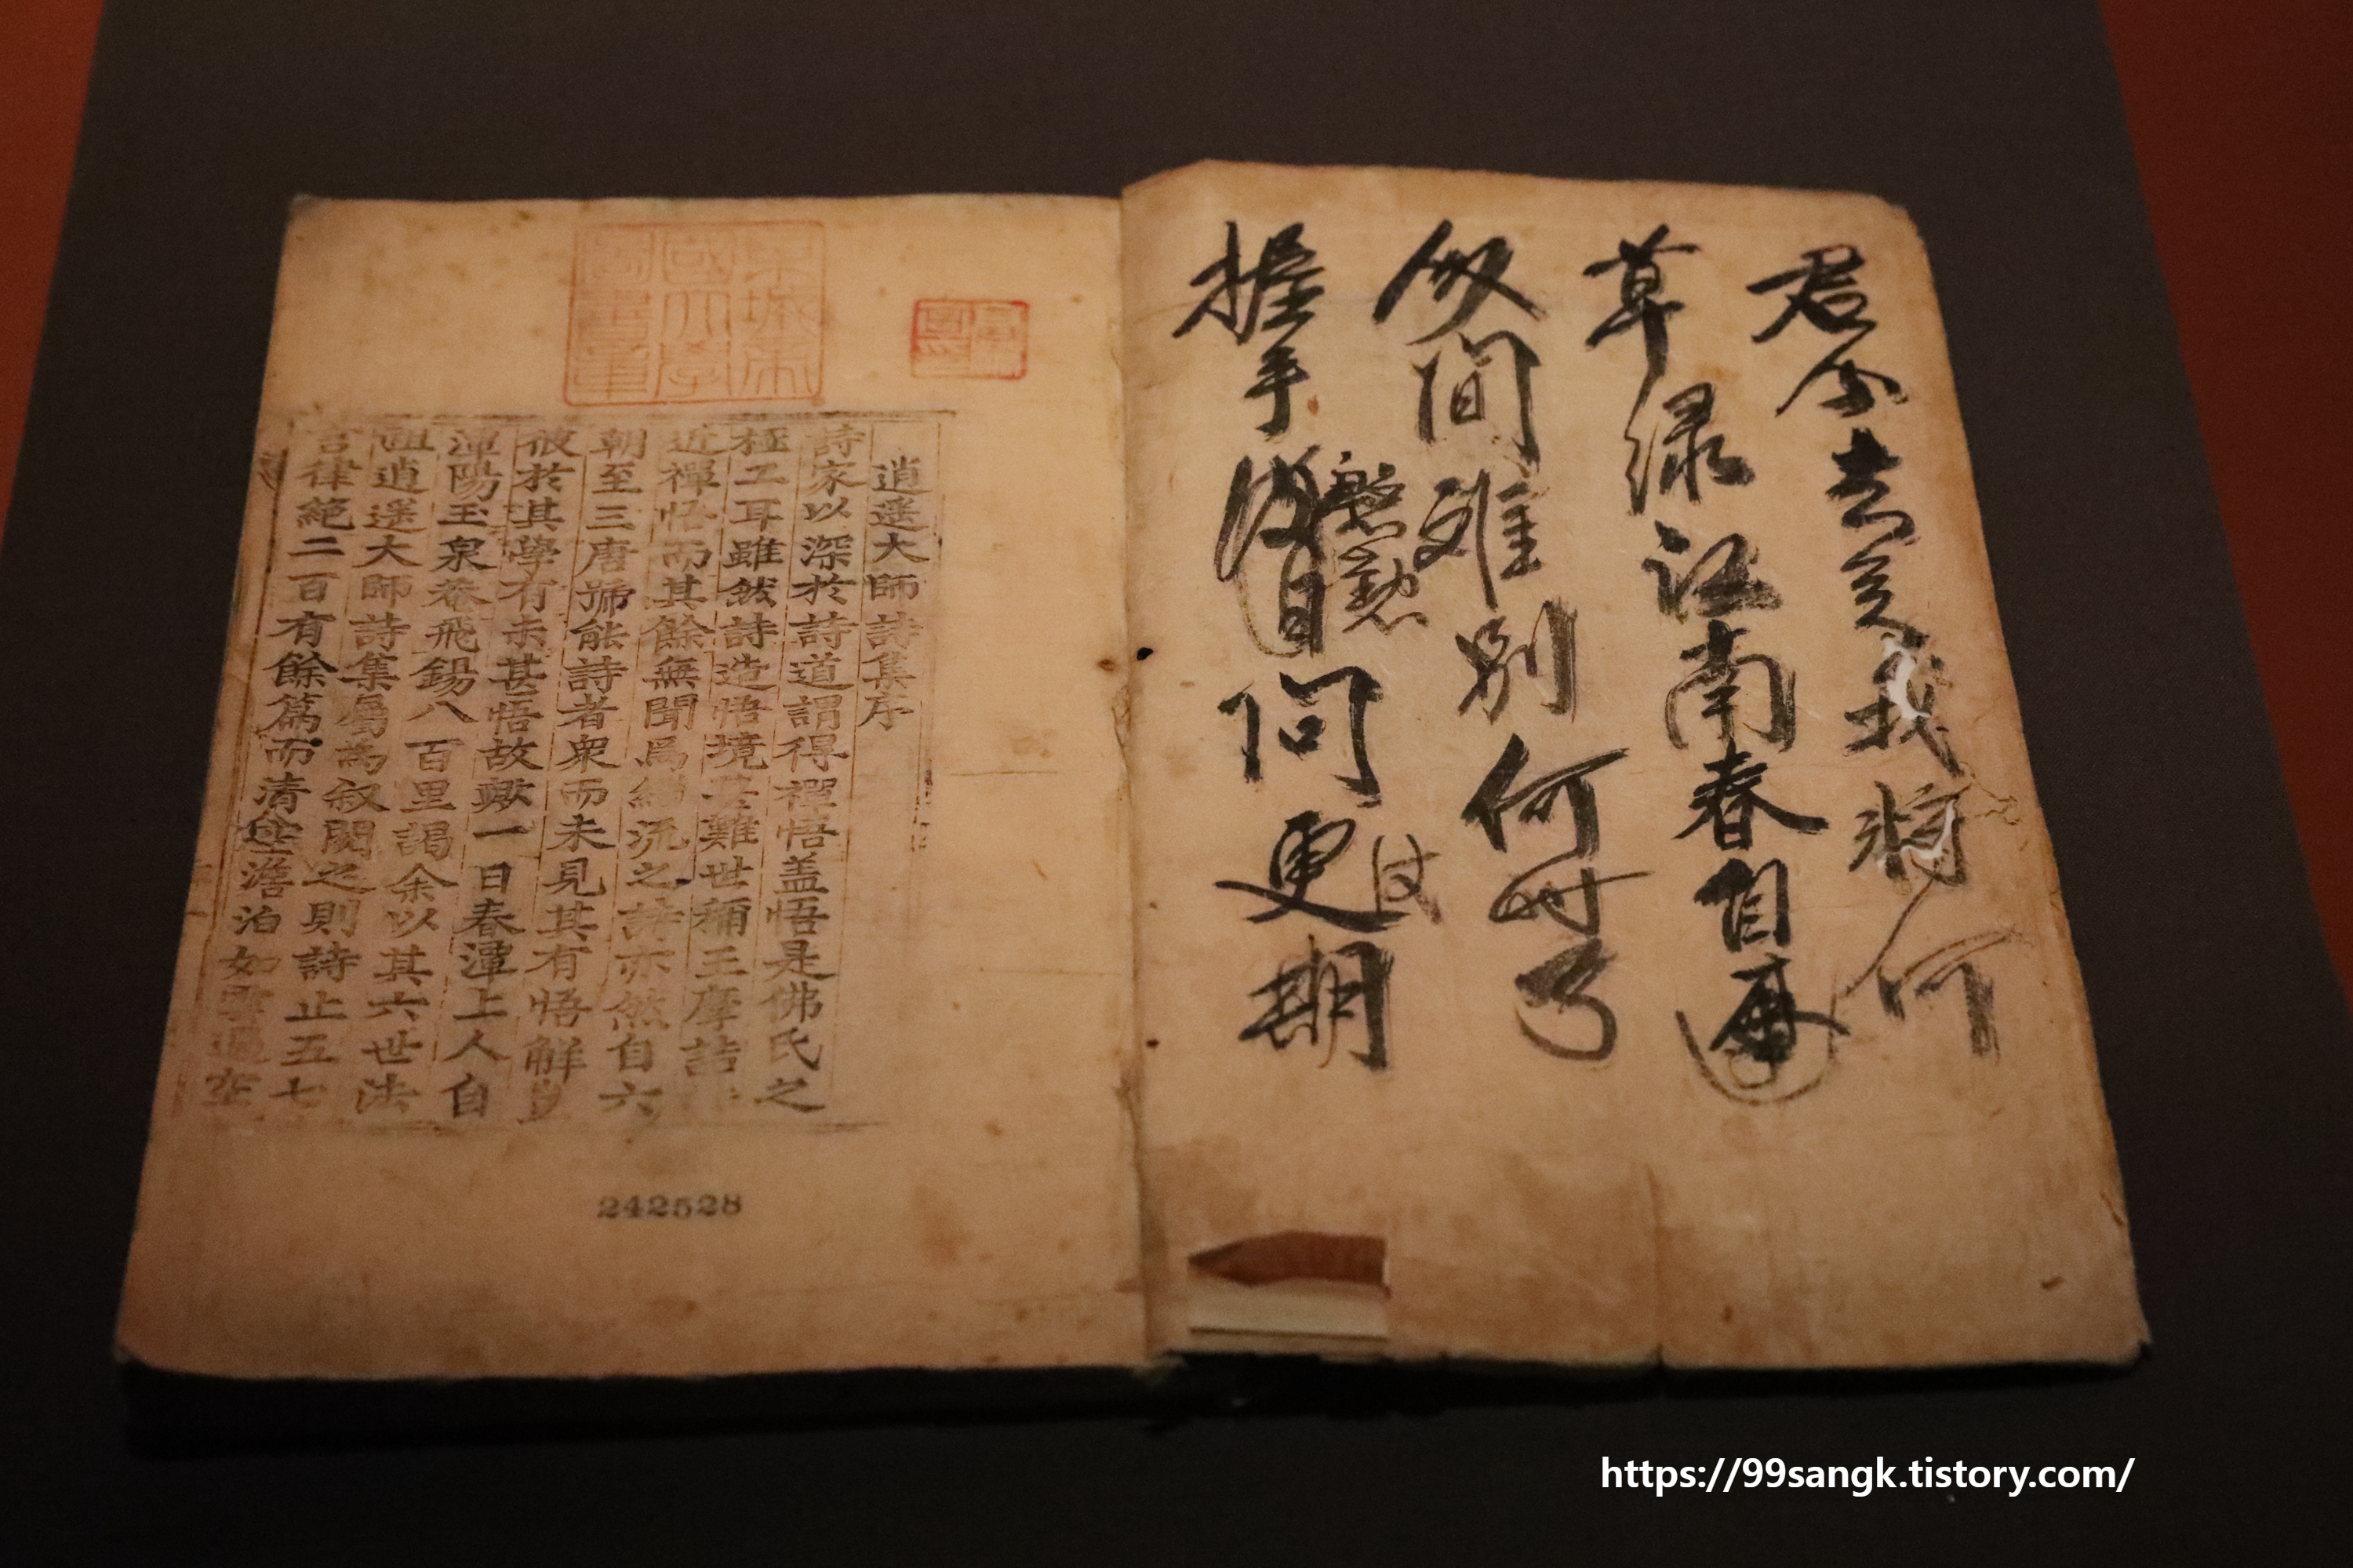 君今去矣我將何
草綠江南春自再
人間難別何時了
握手
慇懃
問更期
逍遙大師詩集序
詩家以深於詩道謂得禪悟盖悟是佛氏之
極工耳雖然詩造悟境甚難世稱王摩詰
近禪悟而其餘無聞焉緇流之詩亦然自六
朝至三唐號能詩者衆而未見其有悟解
彼於其學有未甚悟故歟一日春潭上人自
潭陽玉泉菴飛錫八百里謁余以其六世法
祖逍遙大師詩集屬為叙閱之則詩止五七
言律絕二百有餘篇而清空澹泊如雲過空
242528
https://99sangk.tistory.com/